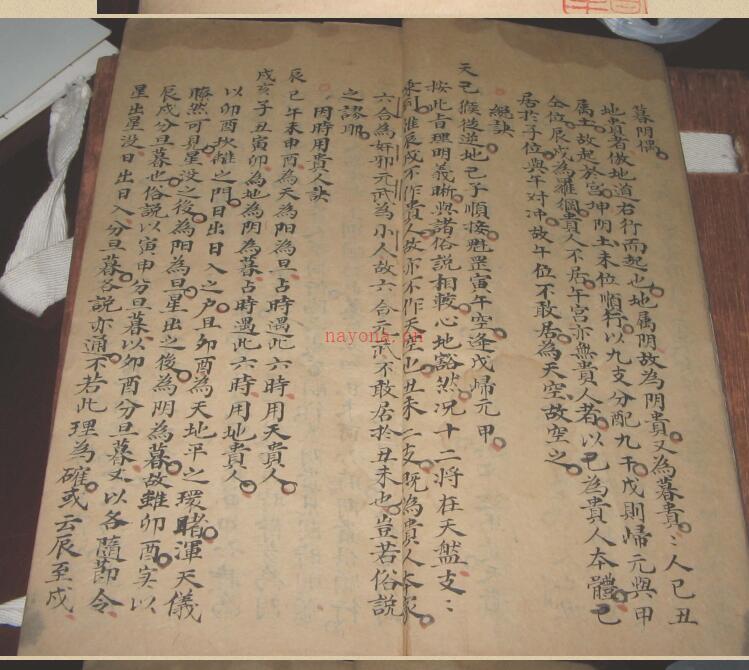 暮阴偶
地貴者倣地道右行而起也地属阴故為阴貴又為暮貴:人已丑
属土故起於宫坤阴土未位順行以九支分配九干戊則歸元與甲
仝位辰戌為羅網貴人不居午宫亦無貴人者以已為貴人本體已
居於子位與午对冲故午位不敢居為天空故空之
總訣
天已猴從逆地已子順接魁罡寅午空逢戊歸元甲
按此旨理明義晰與諸俗説相較心地豁然况十二将在天盤支:
惟辰戌不作貴人故亦不作天空也丑未二支既為貴人本家
六合為奸邪元武為小人故六合元武不敢居於丑未也豈若俗説
之謬耶
因時用貴人訣
辰已午未申酉為天為阳為旦占時遇此六時用天貴人
戌亥子丑寅卯為地為阴為暮占時遇此六時用地貴人
以卯酉 之門日出日入之户且卯酉為天地平之環睹渾天儀
瞭然可見星没之後為阳為旦星出之後為阴為暮故雖卯酉实以
辰戌分旦暮也俗説以寅申分旦暮以卯酉分旦暮又以各隨節令
星出星没日出日入分旦暮各説亦通不若此理為確或云辰至戌
nayona.cn